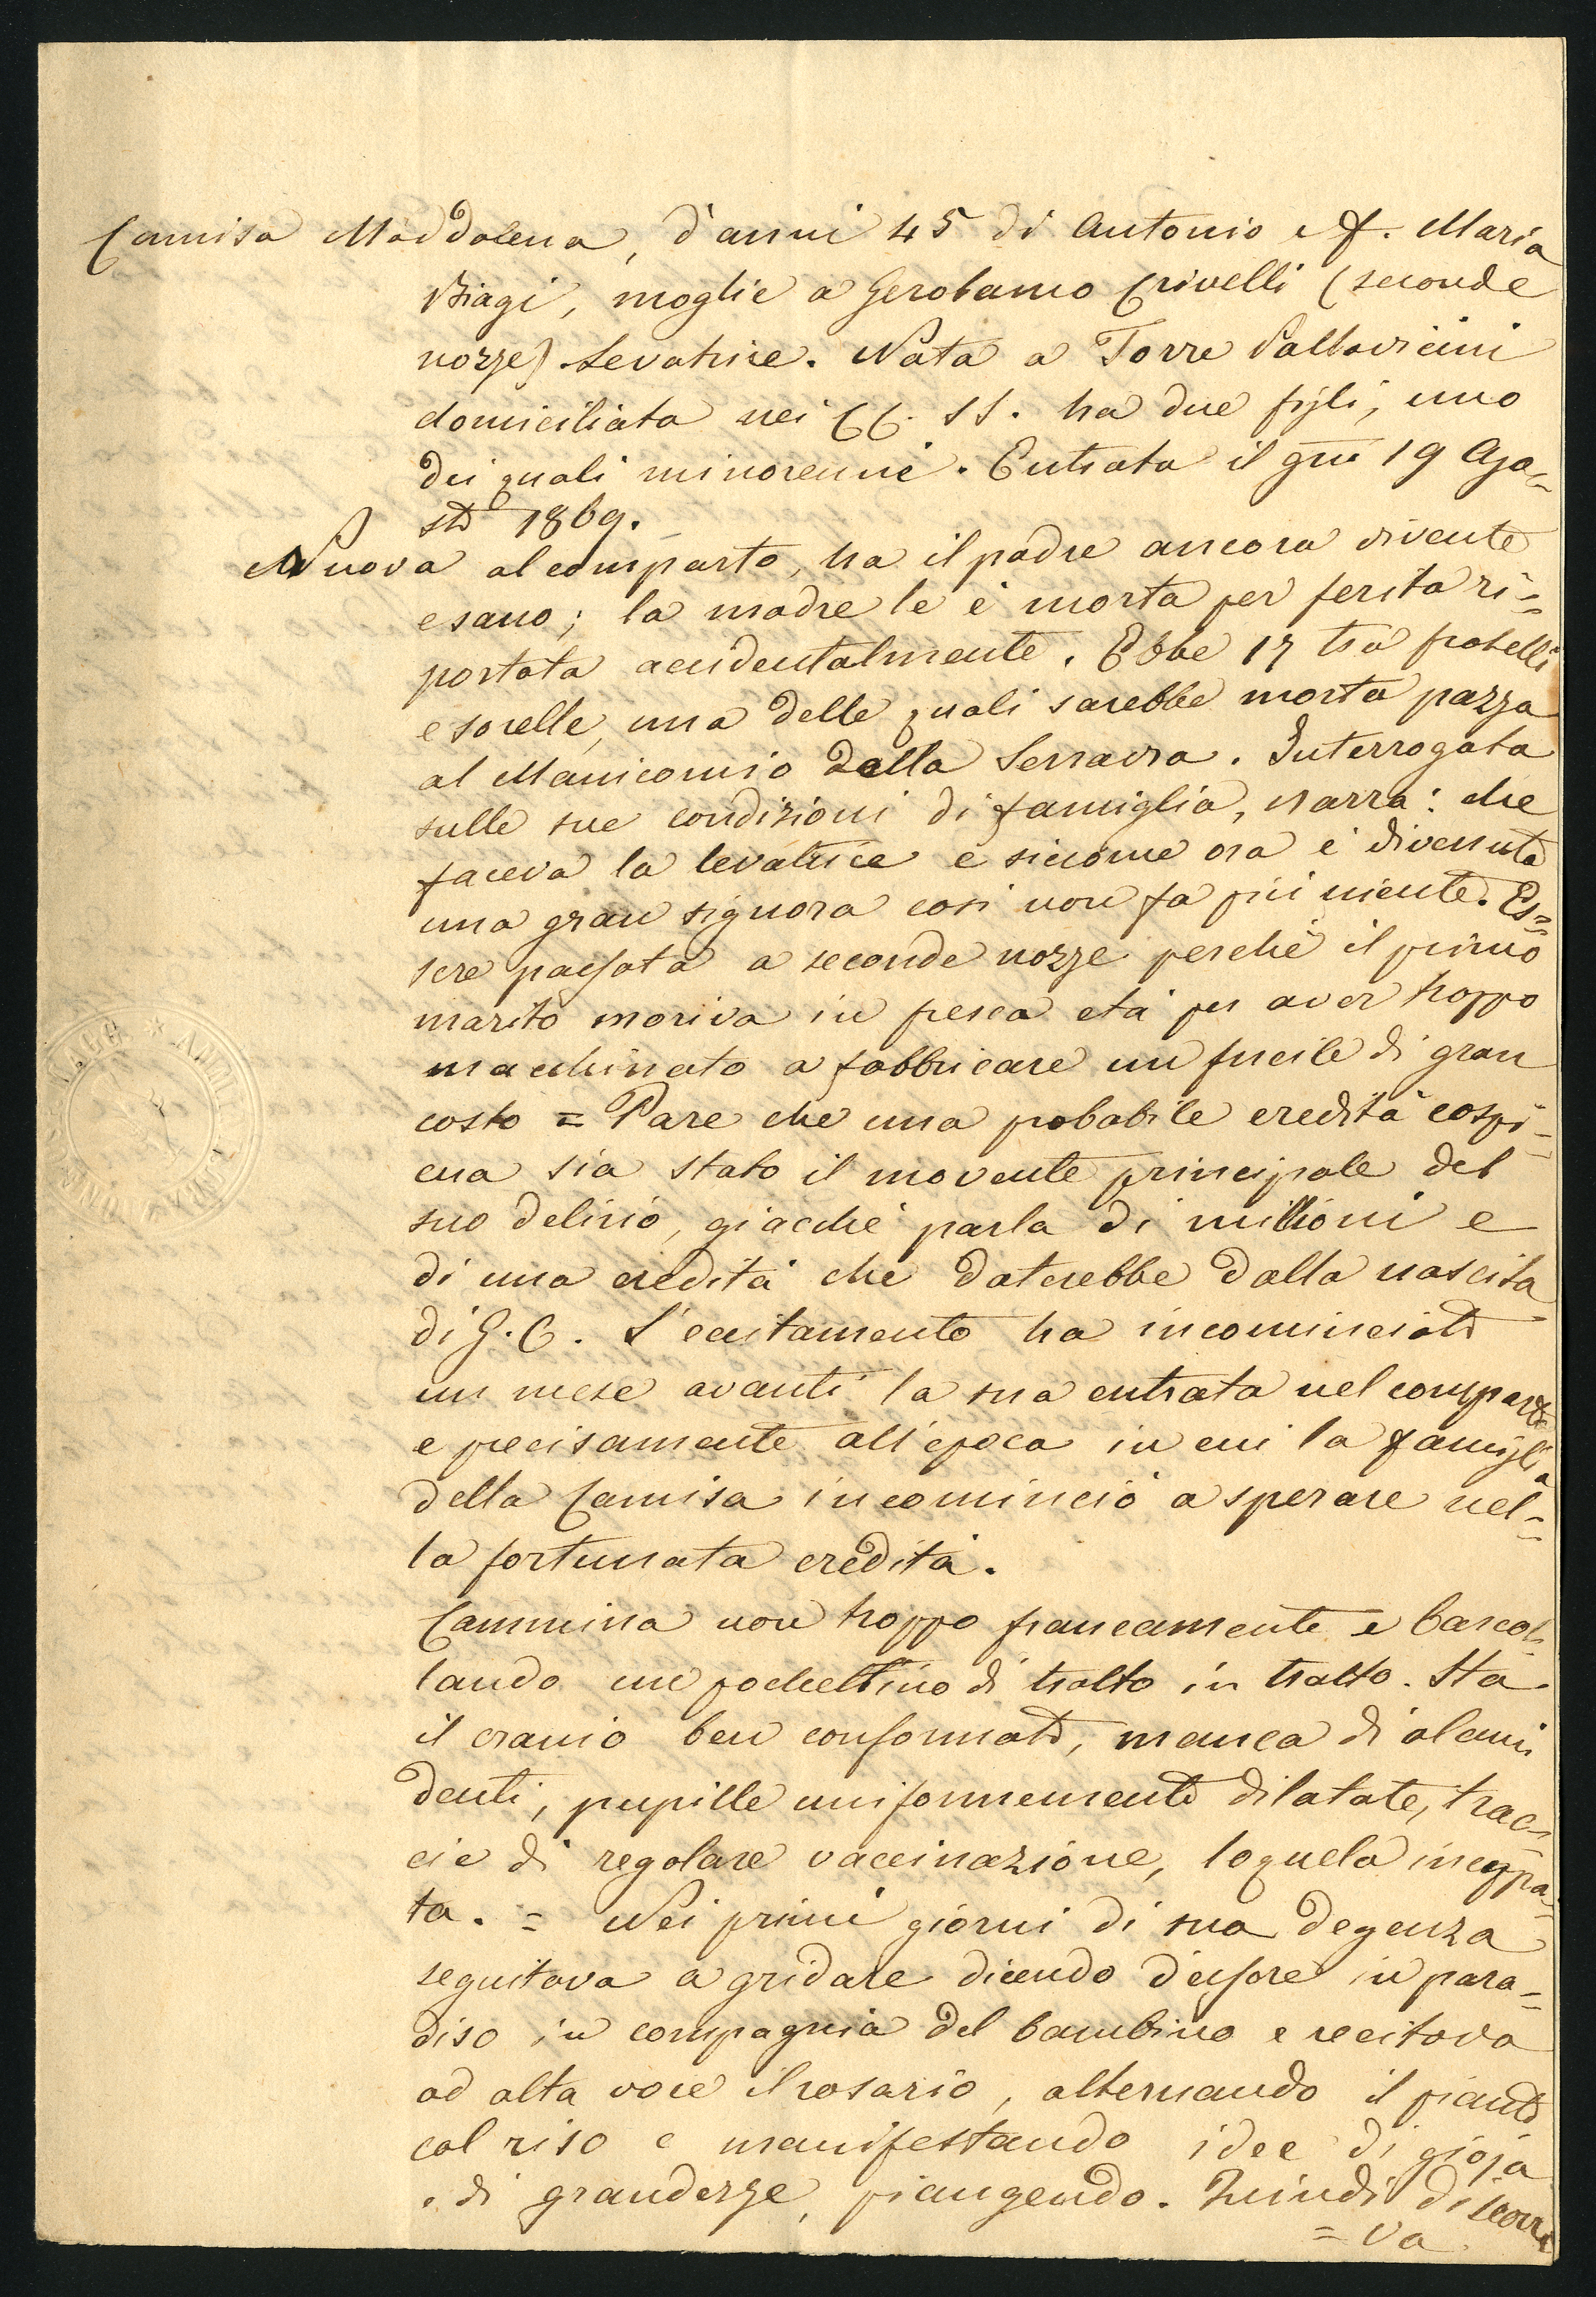 Camisa Maddalena, d'anni 45 di Antonio e f. Maria
Biagi, moglie a Gerolamo Crivelli (seconde
nozze) Levatrice. Nata a Torre Pallavicini
domiciliata nei CC. SS. ha due figli, uno
dei quali minorenne. Entrata il gno 19 Ago=
sto 1869.
Nuova al comparto, ha il padre ancora vivente
e sano; la madre le è morta per ferita ri=
portata accidentalmente. Ebbe 17 tra fratelli
e sorelle, una delle quali sarebbe morta pazza
al Manicomio della Senavra. Interrogata
sulle sue condizioni di famiglia, narra: che
faceva la levatrice e siccome ora è divenuta
una gran signora così non fa più niente. Es=
sere passata a seconde nozze perché il primo
marito moriva in fresca età per aver troppo
macchinato a fabbricare un fucile di gran
costo = Pare che una probabile eredità cospi=
cua sia stato il movente principale del
suo delirio, giacché parla di millioni e
di una eredità che daterebbe dalla nascita
di G. C. L'eccitamento ha incominciato
un mese avanti la sua entrata nel comparto
e precisamente all'epoca in cui la famiglia
della Camisa incominciò a sperare nel=
la fortunata eredità.
Cammina non troppo francamente e barcol=
lando un pochettino di tratto in tratto. Ha
il cranio ben conformato, manca di alcuni
denti, pupille uniformemente dilatate, trac=
cie di regolare vaccinazione, loquela inceppa=
ta. = Nei primi giorni di sua degenza
seguitava a gridare dicendo d'essere in para=
diso in compagnia del bambino e recitava
ad alta voce il rosario, alternando il pianto
col riso e manifestando idee di gioja
e di grandezze, piangendo. Quindi discorre
= va